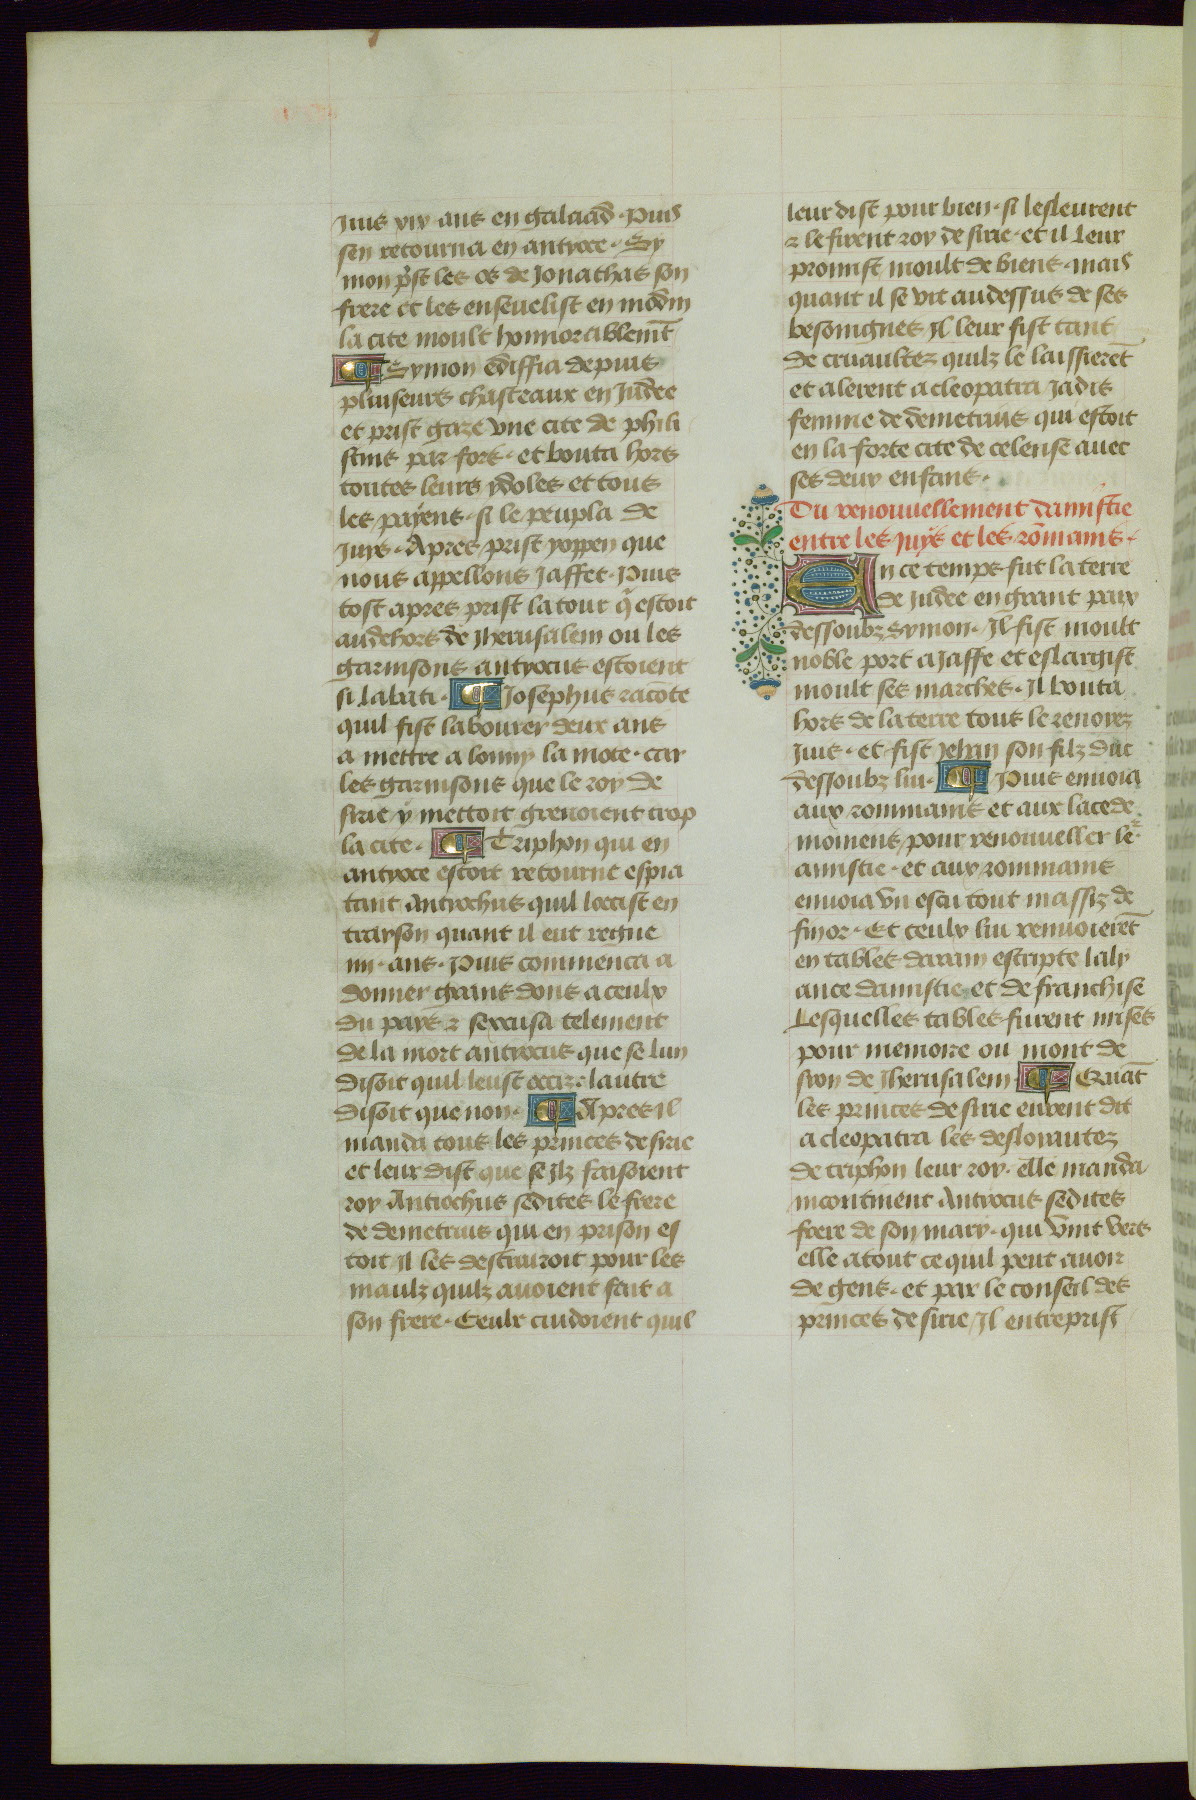 Juis xix ans en galaad · Puis
sen retourna en antyoce · Sy
mon p̃st les os de Jonathas son
frere et les enseuelist en modin
la cite moult honnorablemt̃
Symon ediffia depuis
pluiseurs chasteaux en Judee
et prist gaze vne cite de phili
stins par fort · et bouta hors
toutes leurs ydoles et tous
les payens · si le peupla de
Juifs · Apres prist yoppen que
nous appellons Jaffet · Puis
tost apres prist la tour q̃ estoit
audehors de Jherusalem ou les
garnisons antyocus estoient
si labati · Josephus racõte
quil fist labourer deux ans
a mettre a lonny la mote · car
les garnisons que le roy de
sirie y mettoit greuoient trop
la cite · Triphon qui en
antyoce estoit retourne espia
tant Antiochus quil loccist en
trayson quant il eut regne
iiii · ans · Puis commenca a
donner grans dons a ceulx
du pays ⁊ sexcusa telement
de la mort antyocus que se lun
disoit quil leust occiz · lautre
disoit que non · Apres il
manda tous les princes de sirie
et leur dist que se Ilz faisoient
roy Antiochus sedites le frere
de demetrius qui en prison es
toit Il les destruiroit pour les
maulz quilz auoient fait a
son frere · Ceulx cuidoient quil
leur dist pour bien · si lesleurent
⁊ le firent roy de sirie · et il leur
promist moult de biens · mais
quant il se vit audessus de ses
besoingnes Il leur fist tant
de cruaultez quilz le laissierẽt
et alerent a cleopatra Jadis
femme de demetrius qui estoit
en la forte cite de celense auec
ses deux enfans ·
Du renouuellement damistie
entre les Juys et les rõmains ·
En ce temps fut la terre
de Judee en grant paix
dessoubz symon · Il fist moult
noble port a Jaffe et eslargist
moult ses marches · Il bouta
hors de la terre tous le renoyez
Juis · et fist Jehan son filz duc
dessoubz lui · Puis enuoia
aux rommains et aux lacede
moniens pour renouueller le
amistie · et aux rommains
enuoia vn escu tout massiz de
fin or · Et ceulx lui renuoierẽt
en tables darain escripte laly
ance damistie et de franchise
Lesquelles tables furent mises
pour memoire ou mont de
sion de Jherusalem Quãt
les princes de sirie eurent dit
a cleopatra les desloiautez
de triphon leur roy · elle manda
incontinent Antyocus sedites
frere de son mary · qui vint vers
elle atout ce quil peut auoir
de gens · et par le conseil des
princes de sirie Il entreprist